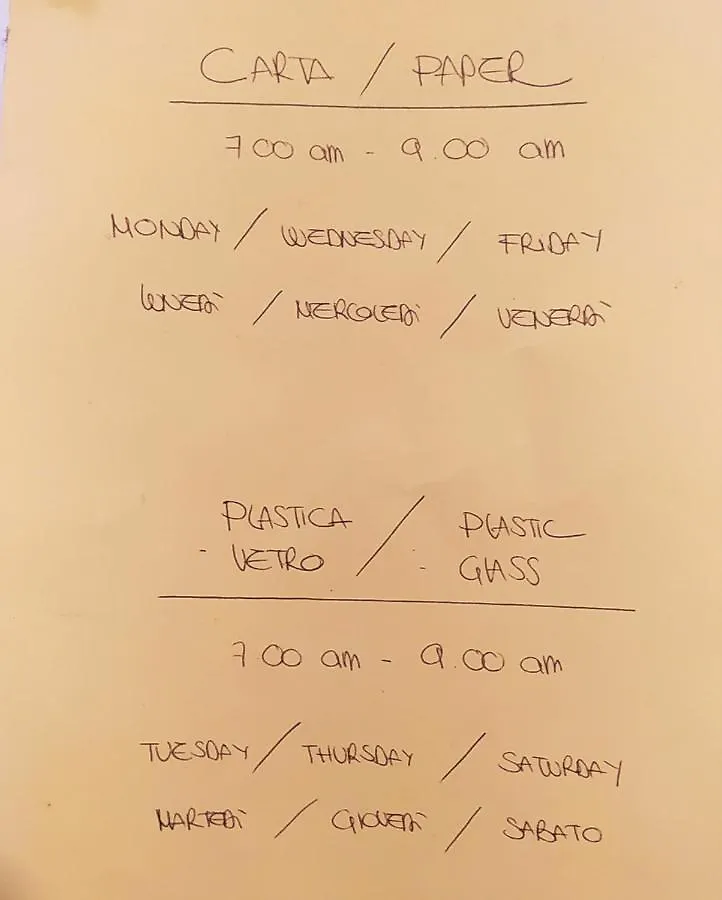 CARTA / PAPER
7 00 am - 9.00 am
MONDAY / WEDNESDAY / FRIDAY
LUNEDÌ / MERCOLEDÌ / VENERDÌ
PLASTICA / PLASTIC
- VETRO - GLASS
7 00 am - 9.00 am
TUESDAY / THURSDAY / SATURDAY
MARTEDÌ / GIOVEDÌ / SABATO